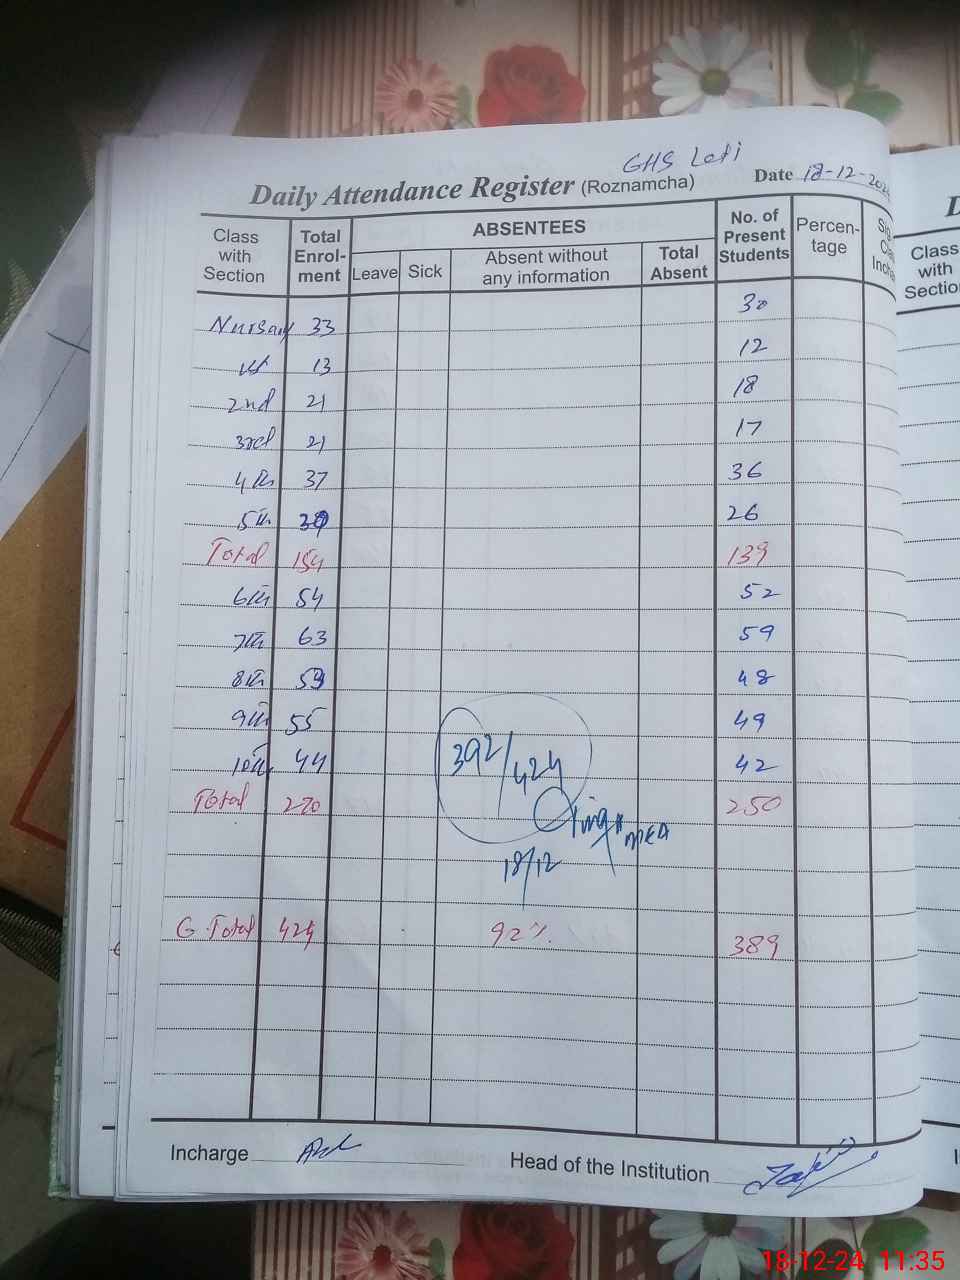 GHS Lati
Daily Attendance Register (Roznamcha) Date 18-12-202
Class with Section Total Enrol-ment ABSENTEES Leave Sick Absent without any information Total Absent No. of Present Students Percen-tage
Nursary 33 30
1st 13 12
2nd 21 18
3rd 21 17
4th 37 36
5th 26
Total 154 139
6th 54 52
7th 63 59
8th 48
9th 55 49
10th 44 42
392/424
Total 270 250
MEA
18/12
G.Total 424 92% 389
Incharge Head of the Institution
Class
with
Section
18-12-24 11:35